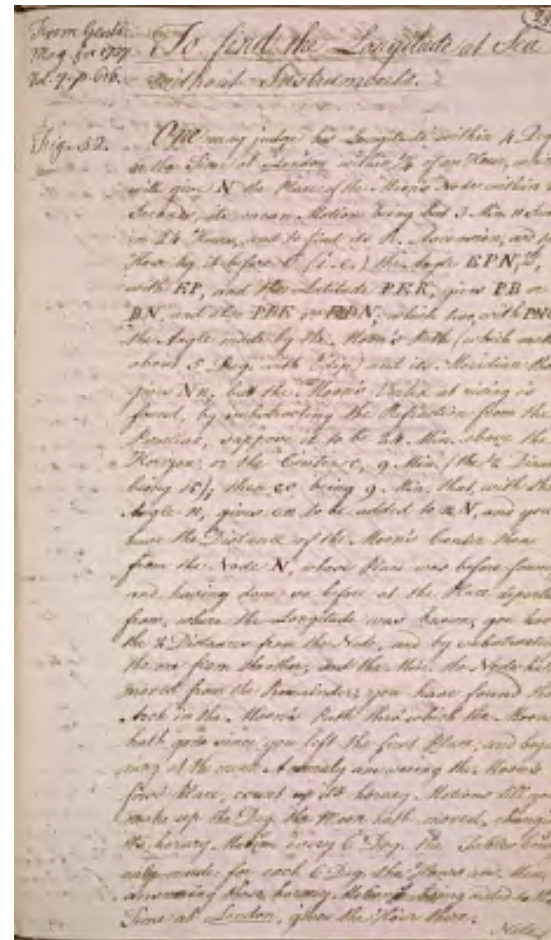 From Gentl:
Mag. for 1737
Vol. 7. p. 616.
To find the Longitude at Sea
without Instruments.
Fig. 52.
One may judge his Longitude within 4 Deg.
or the Time at London within ¼ of an Hour, which
will give N the Place of the Moon's Node within
Seconds, its mean Motion being but 3 Min. 11 Sec.
in 24 Hours, and to find its R. Ascension, and
Hour by it before (i.e.) the Angle EPN,
with EP, and the Latitude PEK, gives PB or
BN, and then PBE or BN, which two, with PN
the Angle made by the Moon's Path (which makes
about 5 Deg. with Eclip.) and its Meridian
give Nn, but the Moon's at rising is
found, by substracting the Refraction from the
Parallax, suppose it to be 24 Min. above the
Horizon, or the Center c, 9 Min. (the ½ Diam.
being 15); then co being 9 Min. that, with the
Angle n, gives cn to be added to nN, and you
have the Distance of the Moon's Center
from the Node N, whose Place was before found
and having done so before at the Place departed
from, where the Longitude was known, you have
the 2 Distances from the Node, and by substracting
the one from the other, and the the Node hath
moved from the Remainder; you have found the
Arch in the Moon's Path thro' which the Moon
hath gone since you left the first Place, and
at the mean Anomaly answering the Moon's
first Place, count up its horary Motions till you
make up the Deg. the Moon hath moved, changing
its horary Motion every 6 Deg. the Tables being
only made for each 6 Deg. the Hours and Min.
answering these horary Motions being added to the
Time at London, gives the Hour there.
Note,